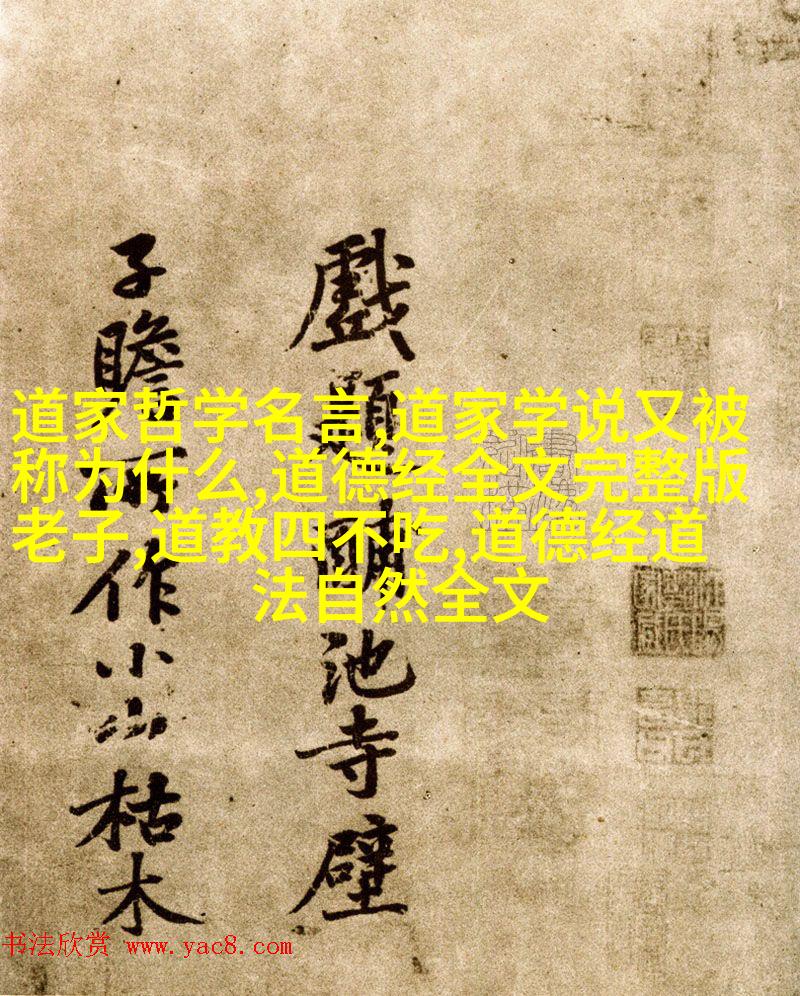 戲題酺池寺壁
子瞻所作小山枯木
道家哲学名言,道家学说又被
称为什么,道德经全文完整版
老子,道教四不吃,道德经道
法自然全文
书法欣赏 www.yac8.com